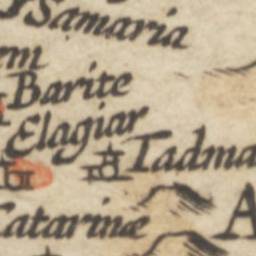 Samaria
em
Barite
Elagiar
Tadma
Catarinæ
A